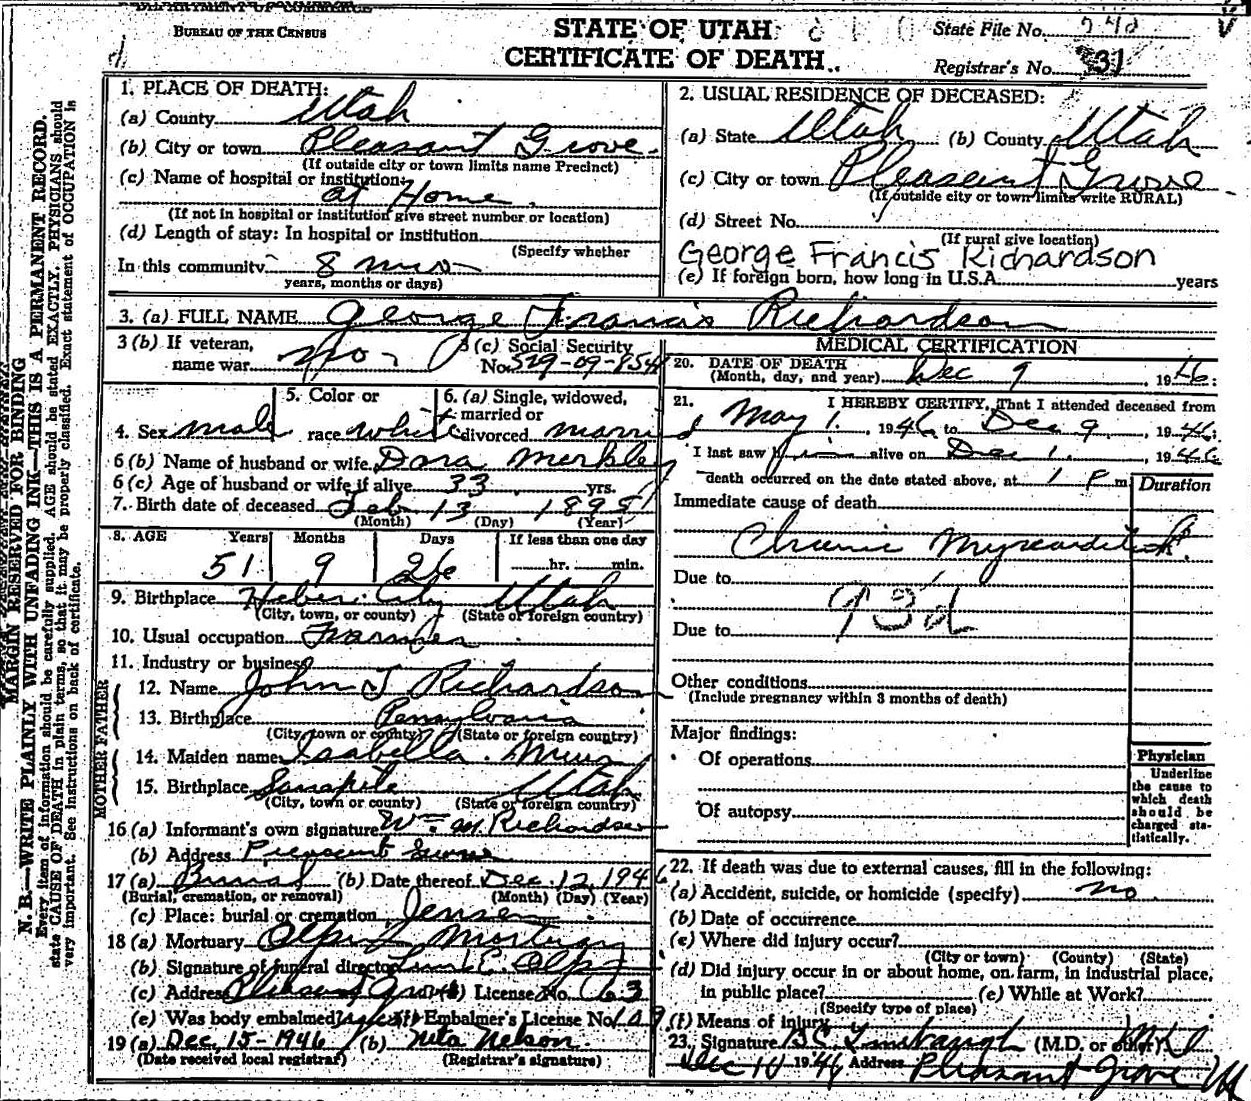 DEPARTMENT OF COMMERCE
BUREAU OF THE CENSUS
STATE OF UTAH
CERTIFICATE OF DEATH
State File No.
Registrar's No. 31
MARGIN RESERVED FOR BINDING
N. B.—WRITE PLAINLY WITH UNFADING INK—THIS IS A PERMANENT RECORD.
Every item of information should be carefully supplied. AGE should be stated EXACTLY. PHYSICIANS should
state CAUSE OF DEATH in plain terms, so that it may be properly classified. Exact statement of OCCUPATION is
very important. See instructions on back of certificate.
1. PLACE OF DEATH:
(a) County Utah
(b) City or town Pleasant Grove
(If outside city or town limits name Precinct)
(c) Name of hospital or institution:
at Home
(If not in hospital or institution give street number or location)
(d) Length of stay: In hospital or institution
(Specify whether
In this community 8 mos
years, months or days)
2. USUAL RESIDENCE OF DECEASED:
(a) State Utah (b) County Utah
(c) City or town Pleasant Grove
(If outside city or town limits write RURAL)
(d) Street No.
(If rural give location)
George Francis Richardson
(e) If foreign born, how long in U.S.A. years
3. (a) FULL NAME George Francis Richardson
3 (b) If veteran,
name war no
3 (c) Social Security
No. 529-09-854
4. Sex male
5. Color or
race white
6. (a) Single, widowed,
married or
divorced married
6 (b) Name of husband or wife Dora Merkley
6 (c) Age of husband or wife if alive 33 yrs.
7. Birth date of deceased Feb 13 1895
(Month) (Day) (Year)
8. AGE Years Months Days If less than one day
51 9 26 hr. min.
9. Birthplace Heber City Utah
(City, town, or county) (State or foreign country)
10. Usual occupation Farmer
11. Industry or business
FATHER
12. Name John T Richardson
13. Birthplace Pennsylvania
(City, town or county) (State or foreign country)
MOTHER
14. Maiden name Isabella
15. Birthplace Sanapete Utah
(City, town or county) (State or foreign country)
16 (a) Informant's own signature Wm M. Richardson
(b) Address Pleasant Grove
17 (a) Burial (b) Date thereof Dec. 12, 1946
(Burial, cremation, or removal) (Month) (Day) (Year)
(c) Place: burial or cremation Jensen
18 (a) Mortuary Olpin Mortuary
(b) Signature of funeral director E. Olpin
(c) Address Pleasant Grove (d) License No. 63
(e) Was body embalmed? yes (f) Embalmer's License No. 109
19 (a) Dec. 15-1946 (b) Neta Nelson
(Date received local registrar) (Registrar's signature)
MEDICAL CERTIFICATION
20. DATE OF DEATH
(Month, day, and year) Dec 9, 1946
21. I HEREBY CERTIFY, That I attended deceased from
May 1, 1946 to Dec 9, 1946
I last saw him alive on Dec 1, 1946
death occurred on the date stated above, at 1 P m.
Duration
Immediate cause of death
Chronic Myocarditis
Due to
93d
Due to
Other conditions
(Include pregnancy within 3 months of death)
Major findings:
Of operations
Of autopsy
Physician
Underline
the cause to
which death
should be
charged sta-
tistically.
22. If death was due to external causes, fill in the following:
(a) Accident, suicide, or homicide (specify) no
(b) Date of occurrence
(c) Where did injury occur?
(City or town) (County) (State)
(d) Did injury occur in or about home, on farm, in industrial place,
in public place? (e) While at Work?
(Specify type of place)
(f) Means of injury
23. Signature B C Linebaugh (M.D. or other) MD
Dec 10 1946 Address Pleasant Grove